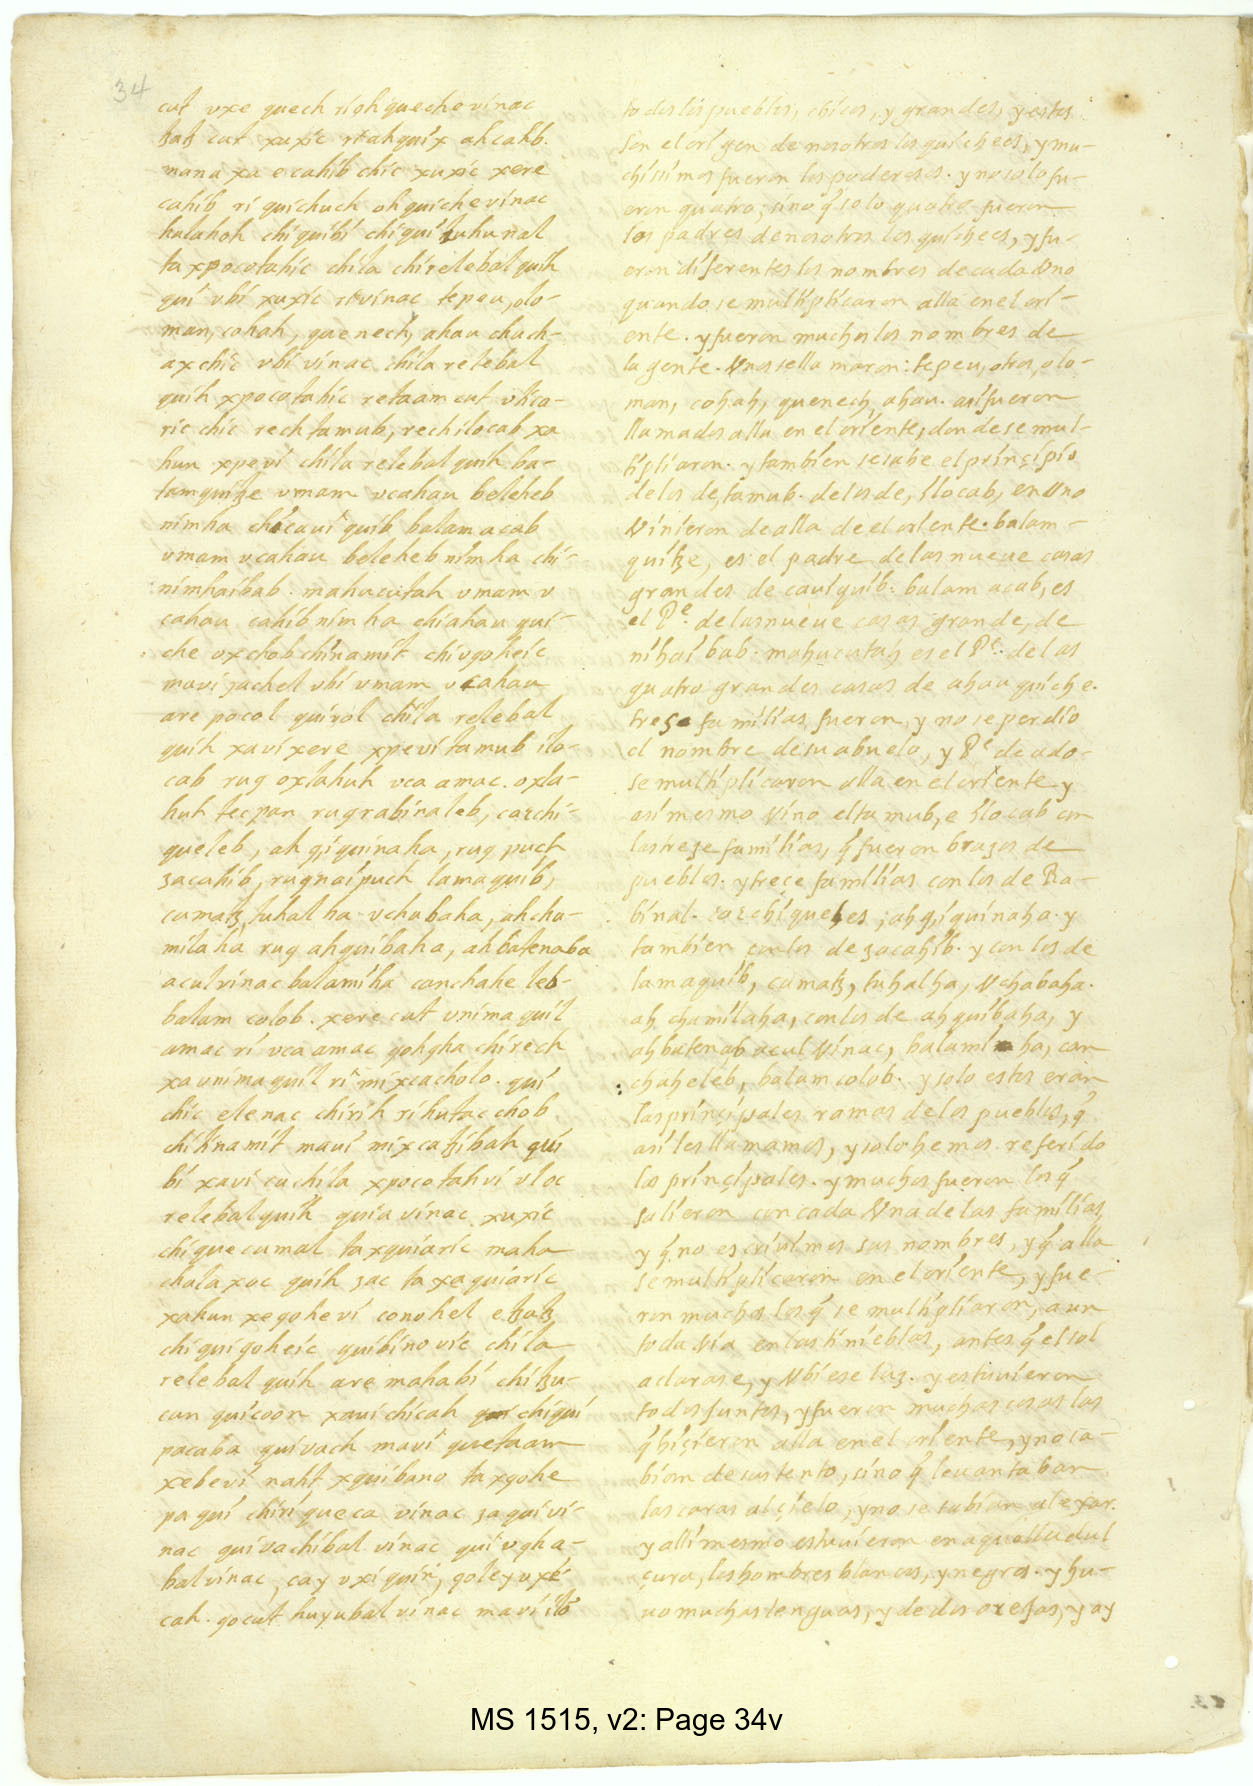 34
cut vxe quech ri oh quechevinac
tzatz cut xuxic ri ahquix ahcahb.
mana xa e cahib chic xuxic xere
cahib ri quichuch oh quichevinac
halahoh chi quibi chi quihuhunal
ta xpocotahic chila chi relebal quih
qui vbi xuxic ri vinac tepeu, olo-
man, cohah, quenech, ahau chuch-
axchic vbi vinac chila relebal
quih xpocotahic retaam cut vtica-
ric chic rech tamub, rech ilocab xa
hun xpe vi chila relebal quih ba-
lam quitze vmam vcahau beleheb
nimha chi cavi quib balam acab
vmam vcahau beleheb nimha chi-
nimhaibab. mahucutah vmam v
cahau cahib nimha chi ahau qui-
che oxchob chinamit chi vqoheic
mavi zachel vbi vmam vcahau
are pocol quirol chila relebal
quih xavi xere xpe vi tamub ilo-
cab ruq oxlahuh vca amac. oxla-
huh tecpan ruq rabinaleb, cacchi-
queleb, ah qiquinaha, ruq puch
zacahib, ruq nai puch lamaquib,
cumatz, tuhal ha vchabaha, ahchu-
milaha ruq ahquibaha, ahbatenaba
acul vinac balamiha canchaheleb-
balam colob. xere cut vnimaquil
amac ri vca amac qohqha chirech
xa vnimaquil ri mixcacholo. qui
chic elenac chirih rihutac chob
chihnamit mavi mixcatzibah qui
bi xavi cu chila xpocotah vi vloc
relebal quih quia vinac xuxic
chi quecumal ta xquiaric maha
chalaxoc quih zac ta xequiaric
xahun xeqohe vi conohel e tzatz
chi quiqoheic quibinovic chila
relebal quih are mahabi chi tzu-
cun qui coon xavi chicah chi qui
pacaba quivach mavi quetaam
xebe vi naht xquibano ta xqohe
pa qui chiri queca vinac zaqui vi-
nac qui vachibal vinac qui vqha-
bal vinac, cay vxiquin, qoley vxe
cah. qo cut huyubal vinac mavi ilo
todos los pueblos, chicos, y grandes, y estos
son el origen de nosotros los quichees, y mu-
chissimos fueron los poderosos. y no solo fu-
eron quatro, sino q̃ solo quatro fueron
los padres de nosotros los quichees, y fu-
eron diferentes los nombres de cada Vno
quando se multiplicaron alla en el ori-
ente. y fueron muchos los nombres de
la gente. Vnos se llamaron: tepeu, otros, olo-
man, cohah, quenech, ahau. asi fueron
llamados alla en el oriente, donde se mul-
tipliaron. y tambien se sabe el prinçipio
de los de, tamub. de los de, ilocab, en Vno
Vinieron de alla de el oriente. balam-
quitze, es el padre de las nueue casas
grandes de cauiquib. balam acab, es
el P.e de las nueue casas grande, de
nihai bab. mahucutah es el P.e de las
quatro grandes casas de ahau quiche.
trese familias fueron, y no se perdio
el nombre de su abuelo, y P.e de ado-
se multiplicaron alla en el oriente y
asi mesmo Vino el tamub, e ilocab con
las treze familias, q̃ fueron brazos de
pueblos. y treçe familias con los de Ra-
binal. cacchiqueles, ahqiquinaha. y
tambien con los de zacahib. y con los de
lamaquib, cumatz, tuhalha, Vchabaha.
ah chumilaha, con los de ah quibaha, y
ahbatenab acul Vinac, balamiha, can
chaheleb, balam colob. y solo estos eran
las prinçipales ramas de los pueblos, q̃
asi les llamamos, y solo hemos referido
los prinçipales. y muchos fueron los q̃
salieron con cada Vna de las familias,
y q̃ no escriuimos sus nombres, y q̃ alla
se multiplicaron en el oriente, y fue-
ron muchos los q̃ se multipliaron, a un
toda Via en las tinieblas, antes q̃ el sol
aclarase, y Vbiese luz. y estuuieron
todos juntos, y fueron muchas cosas las
q̃ hiçieron alla en el oriente, y no ca-
bian de sustento, sino q̃ leuantaban
las caras al çielo, y no se sabian alexar.
y alli mesmo estuuieron en aquella dul
çura, los hombres blancos, y negros. y hu-
uo muchas lenguas, y de dos orejas, y ay
MS 1515, v2: Page 34v